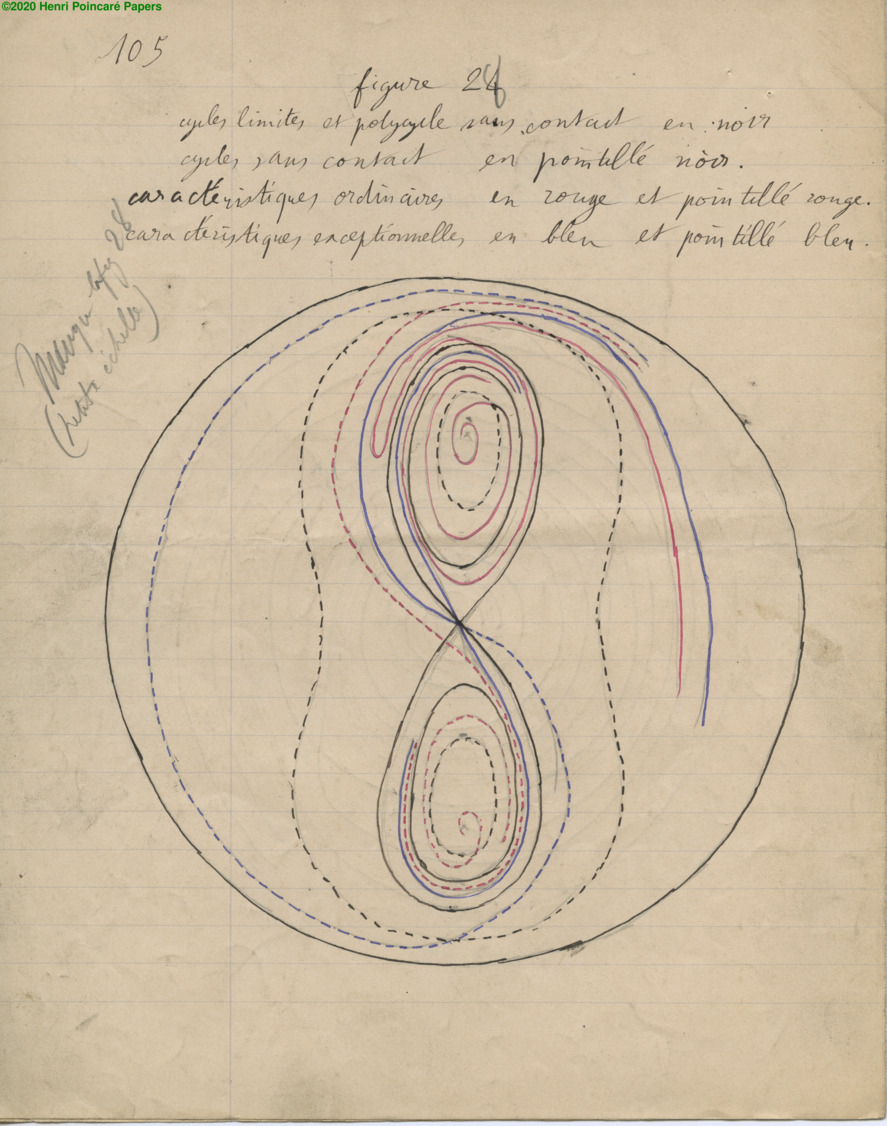 ©2020 Henri Poincaré Papers
105
figure 28
cycles limites et polycycle sans contact en noir
cycles sans contact en pointillé noir.
caractéristiques ordinaires en rouge et pointillé rouge.
caractéristiques exceptionnelles en bleu et pointillé bleu.
28
échelle)